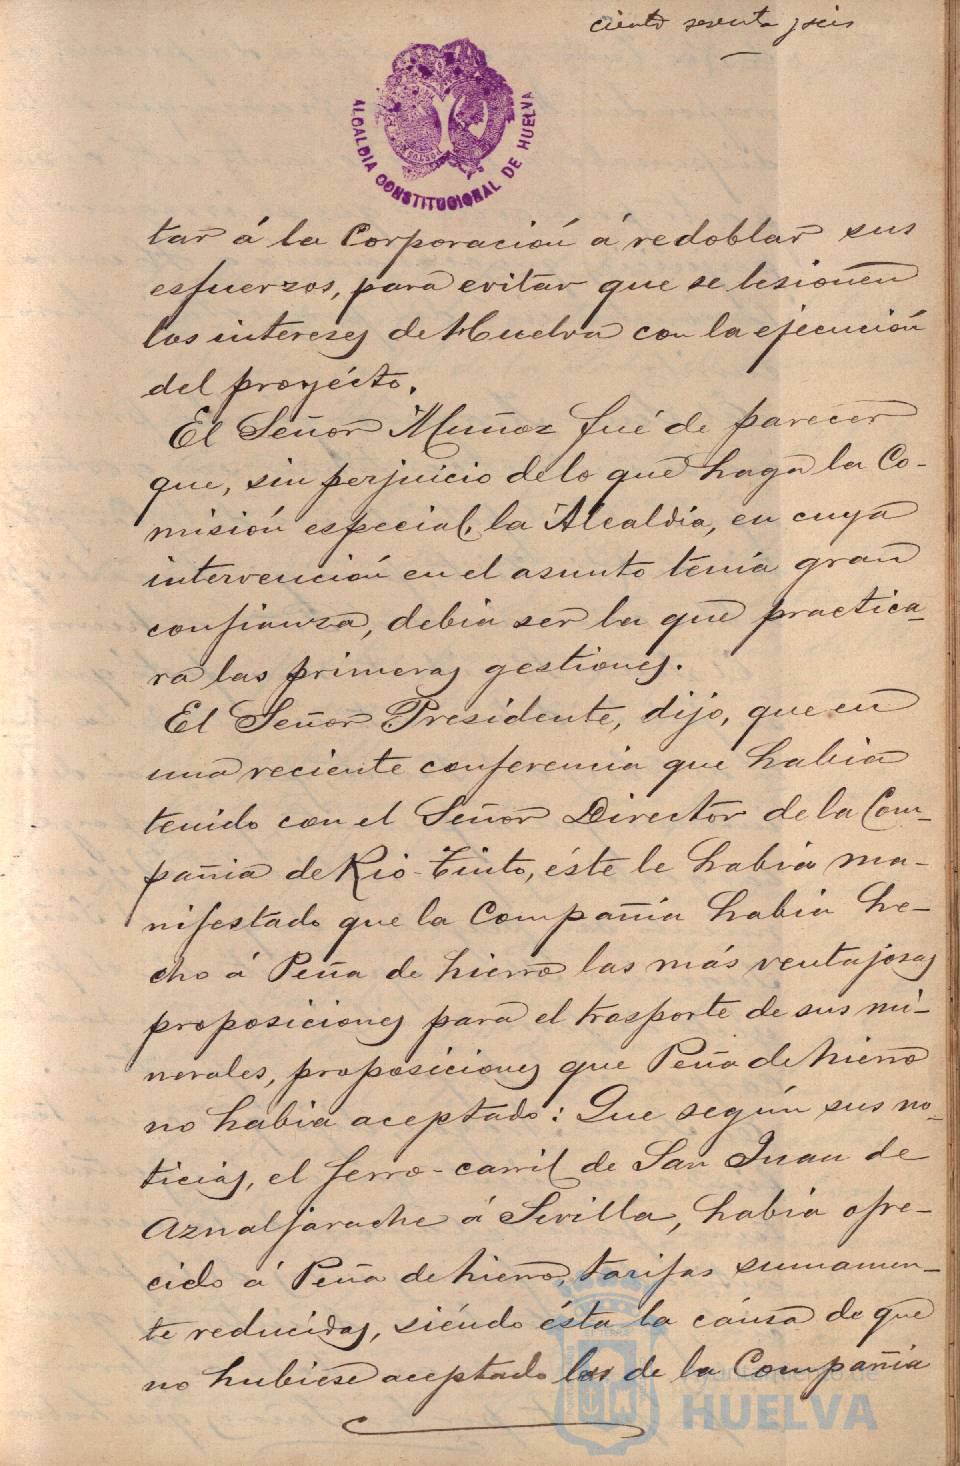 ciento sesenta y seis
ALCALDIA CONSTITUCIONAL DE HUELVA
tar á la Corporación á redoblar sus
esfuerzos, para evitar que se lesionen
los intereses de Huelva con la ejecución
del proyécto.
El Señor Muñoz fué de parecer
que, sin perjuicio de lo que haga la Co-
misión especial, la Alcaldía, en cuya
intervención en el asunto tenía gran
confianza, debia ser la que practica-
ra las primeras gestiones.
El Señor Presidente, dijo, que en
una reciente conferencia que habia
tenido con el Señor Director de la Com-
pañia de Rio-Tinto, éste le habia ma-
nifestado que la Compañia habia he-
cho á Peña de hierro las más ventajosas
proposiciones para el trasporte de sus mi-
nerales, proposiciones que Peña de hierro
no habia aceptado: Que según sus no-
ticias, el ferro-carril de San Juan de
Aznalfarache á Sevilla, habia ofre-
cido á Peña de hierro, tarifas sumamen-
te reducidas, siéndo ésta la cáusa de que
no hubiese aceptado las de la Compañia
Ayuntamiento de
HUELVA